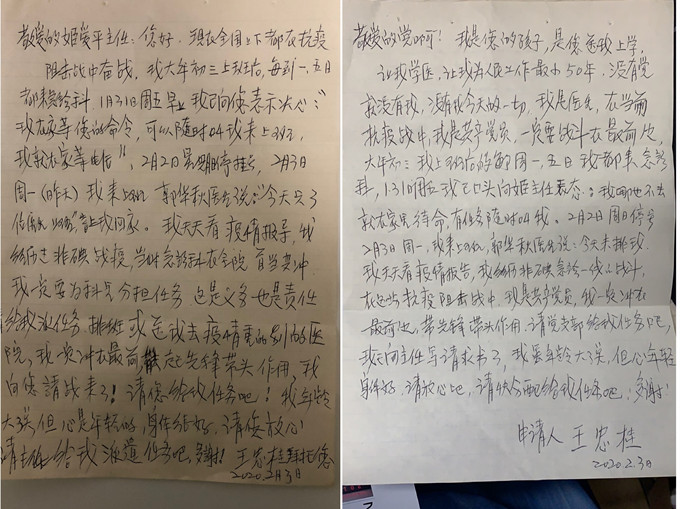 敬爱的姬爱平主任：您好！现在全国上下都在抗疫
阻击战中奋战，我大年初三上班后，每到一、五日
都来急诊科 1月31日周五早上我已向您表示决心：“
我在家等您的命令，可以随时叫我来上班，
我就在家等电话”，2月2日 停排，2月3日
周一（昨天）我来上班 郭华秋医生说：“今天只
让我回家。我天天看疫情报导，我
经历过非典战疫，当时急诊科在全院首当其冲
我一定要为科里分担任务 这是义务也是责任
给我派任务 排班或是送我去疫情重的别的医
院，我一定冲在最前，起先锋带头作用，我
向您请战来了！请您给我任务吧！我年龄
大了些，但心是年轻的，身体很好，请您放心
请主任给我派遣任务吧，多谢！王忠桂拜托您
2020.2月3日
敬爱的党啊！我是您的孩子，是您送我上学，
让我学医，让我为人民工作最小50年，没有党
就没有我，没有我今天的一切，我是医生，在当前
抗疫战中，我是共产党员，一定要战斗在最前边，
大年初三我上班后的每周一、五日我都来急诊
科，1.31周五我已口头向姬主任表态：我哪也不去
就在家里待命，有任务随时叫我。2月2日周日停
2月3日周一，我来上班，郭华秋医生说：今天未排我
我天天看疫情报告，我经历非典急诊一线的战斗，
在这些抗疫阻击战中，我是共产党员，我一定冲在
最前边，带先锋带头作用，请党支部给我任务吧，
我已向主任写请求书了，我虽年龄大了些，但心年轻
身体好，请放心吧，请快分配给我任务吧，多谢！
申请人 王忠桂
2020.2.3日